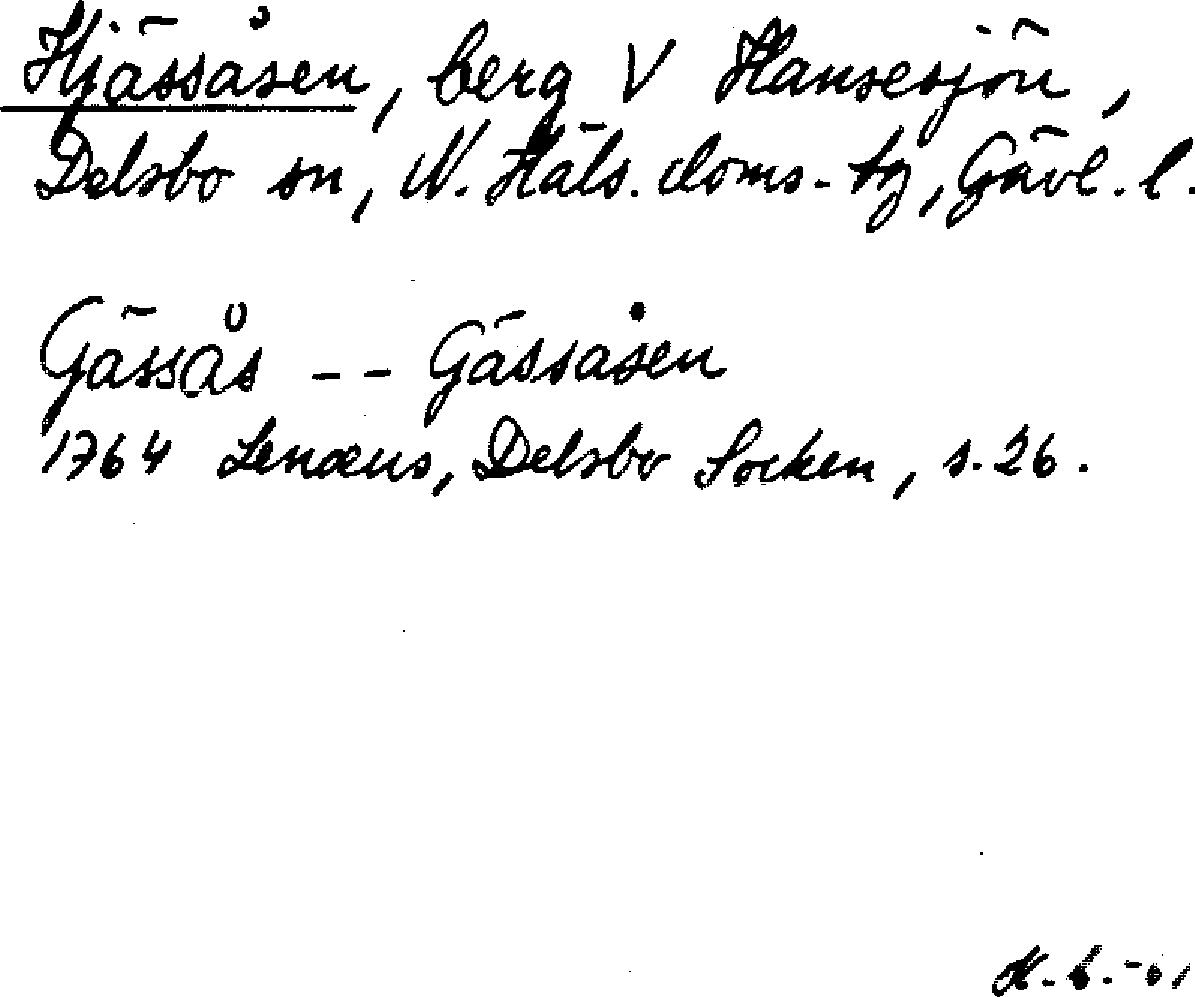 Hjässåsen, berg V Hansesjön,
Delsbo sn, N. Häls. doms.-tg, Gävl. l.
Gässås -- Gässåsen
1764 Lenæus, Delsbo Socken, s. 26.